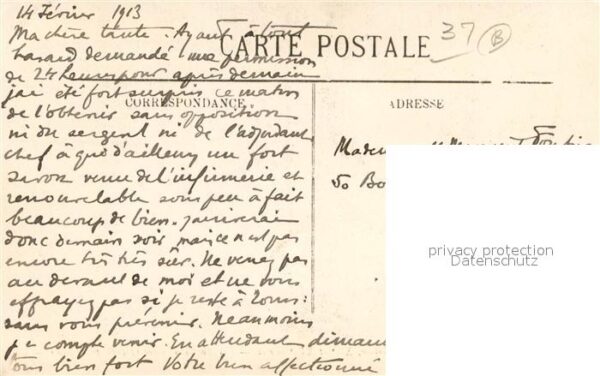 14 Février 1913
Ma chère tante. Ayant à tout
hasard demandé une permission
CARTE POSTALE
37
B
de 24 heures pour après demain
j'ai été fort surpris ce matin
CORRESPONDANCE
ADRESSE
de l'obtenir sans opposition
ni du sergent ni de l'adjudant
chef à qui d'ailleurs un fort
savon venu de l'infirmerie et
renouvelable sous peu à fait
beaucoup de bien. j'arriverai
donc demain soir mais ce n'est pas
encore très très sûr. Ne venez pas
au devant de moi et ne vous
effrayez pas si je reste à
sans vous prévenir. Néanmoins
je compte venir. En attendant
tous bien fort Votre bien affectionné
50 Bo
privacy protection
Datenschutz